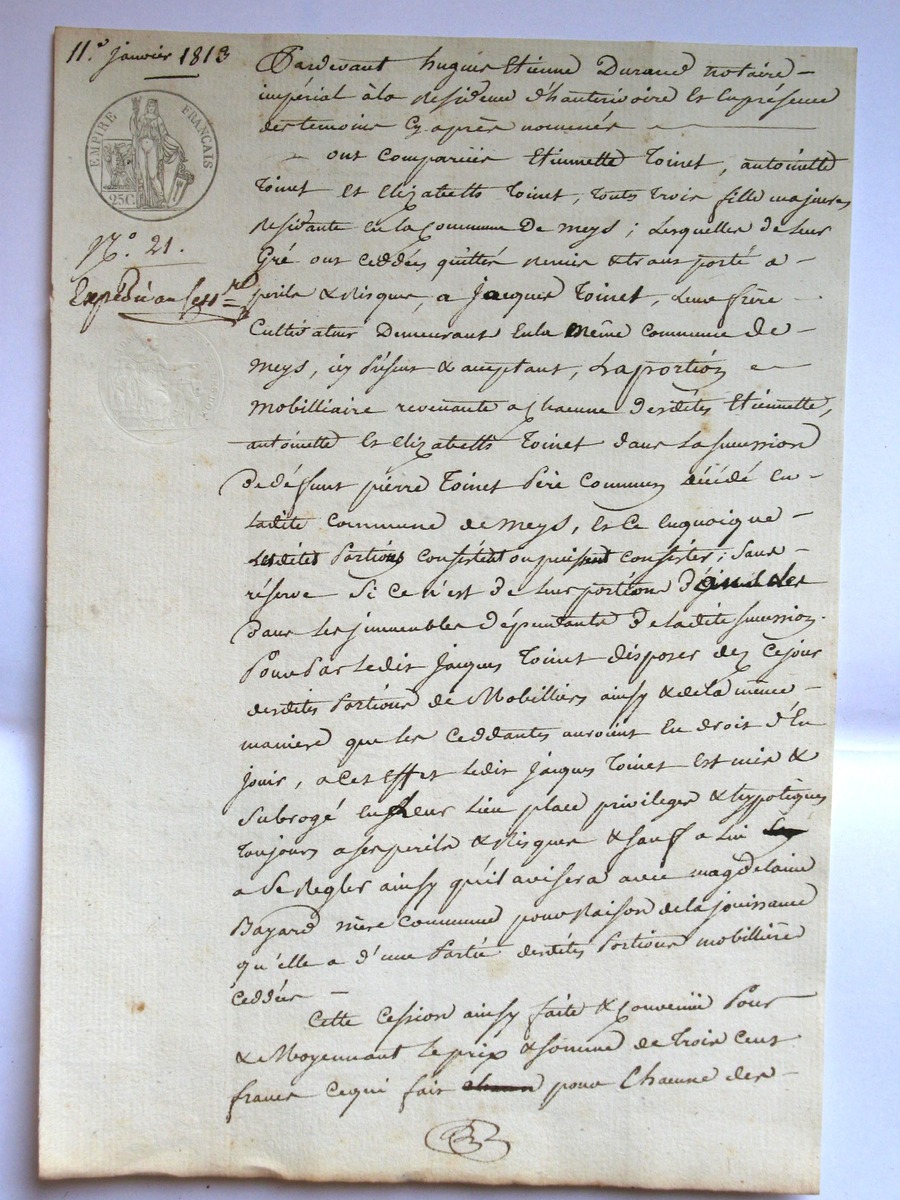 11.e janvier 1813
EMPIRE FRANÇAIS
25C.
N.o 21.
Expédié au Cess.re
Pardevant hugues Etienne Durand notaire
impérial à la Residence d'hauterivoire Et En présence
des temoins Cy après nommés
ont comparües Etiennette Toinet, antoinette
Toinet et Elizabeth Toinet, toutes trois fille majeures
Residante En la Commune De meys; Lesquelles de Leur
Gré ont ceddées quittés Remis & transporté a
perils & Risques, a Jacques Toinet, Leur frère
Cultivateur Demeurant En la même Commune De
meys, icy Présent & acceptant, La portion
mobilliaire revenante a Chacune desdites Etiennette,
antoinette Et Elizabeth Toinet dans La succession
De défunt pierre Toinet Père Commun décédé En
Ladite Commune de meys, Et Ce En quoique
Lesdites Portions Consistent ou puissent Consister; Sans
réserve Si Ce n'est de Leur portions
dans Les immeubles dépendants De Ladite succession.
Pour Par Ledit Jacques Toinet disposer dez Ce jour
desdites Portions de Mobilliers ainsy & de la même
maniere que Les Ceddantes auroient En droit d'En
jouir, a cet Effet Ledit Jacques Toinet Est mis &
Subrogé En Leur Lieu place privileges & hypotèques
Toujours a ses perils & Risques & sauf a Lui
a Se Regler ainsy qu'il avisera avec magdelaine
Bayard mère Commune pour Raison de la jouissance
qu'elle a d'une Partie desdites Portions mobilliere
Ceddées
Cette Cession ainsy faite & Convenüe Pour
& Moyennant Le prix & somme de Trois Cent
francs Ce qui fait pour Chacune des